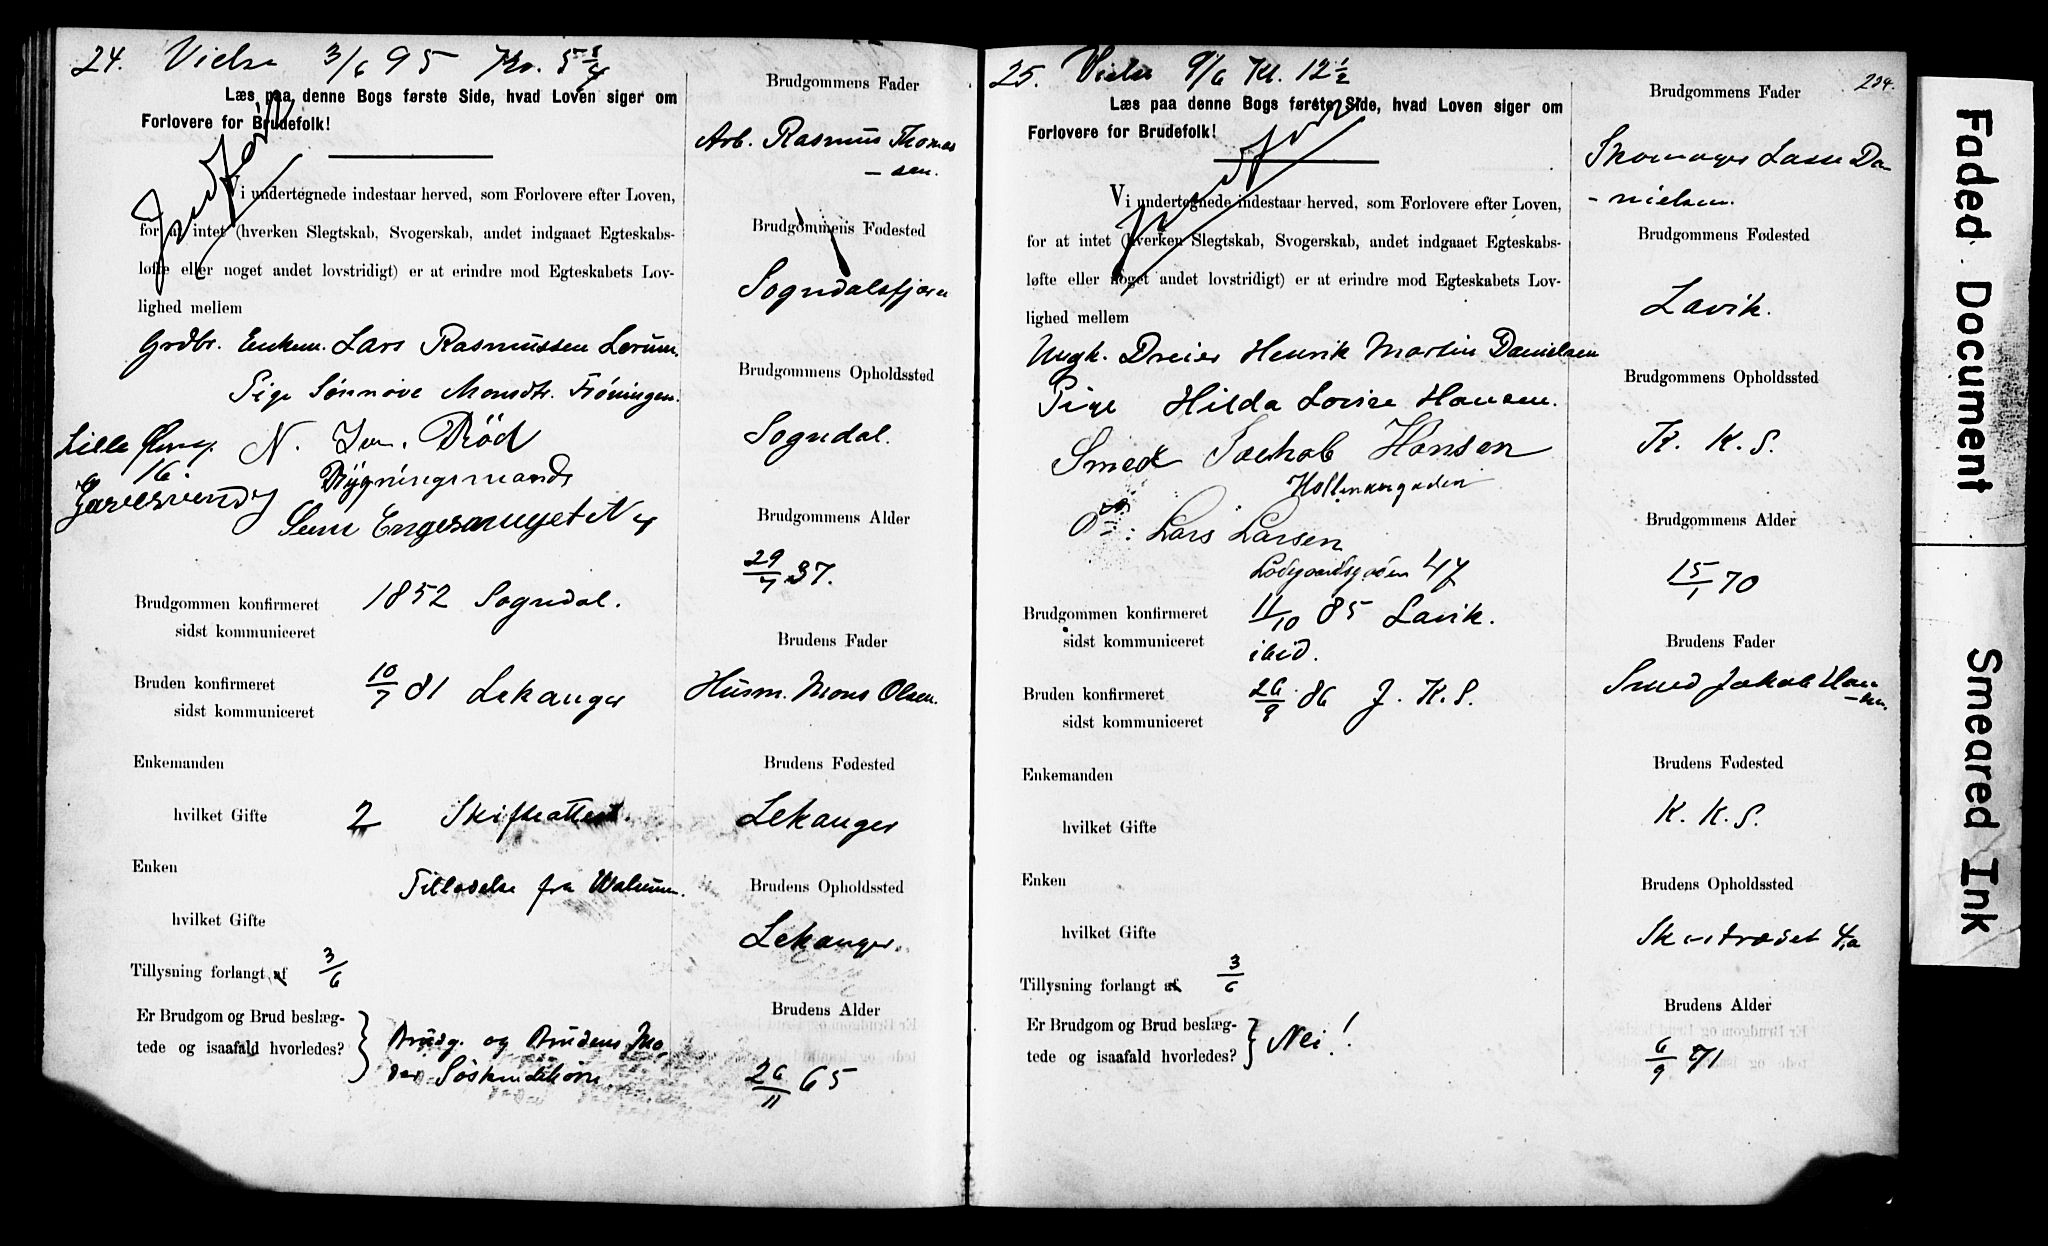 24. Vielse 3/6 95 Kl. 5 3/4
Læs paa denne Bogs første Side, hvad Loven siger om
Forlovere for Brudefolk!
Vi undertegnede indestaar herved, som Forlovere efter Loven,
for at intet (hverken Slegtskab, Svogerskab, andet indgaaet Egteskabs-
løfte eller noget andet lovstridigt) er at erindre mod Egteskabets Lov-
lighed mellem
Grdbr. Enkem. Lars Rasmussen Lerum.
Pige Sønnøve Monsdtr. Frøningen.
Lille Øvreg.
16.
N. Rød
Bygningsmand
Engesmuget N 4
Brudgommen konfirmeret 1852 Sogndal.
sidst kommuniceret
Bruden konfirmeret 10/7 81 Lekanger
sidst kommuniceret
Enkemanden
hvilket Gifte 2 Skifteattest.
Enken
Tilladelse fra
hvilket Gifte
Tillysning forlangt af 3/6
Er Brudgom og Brud beslæg-
tede og isaafald hvorledes?
Brudg. og Brudens Mo-
der Søskendebørn.
Brudgommens Fader
Arb. Rasmus Thomas
- sen.
Brudgommens Fødested
Sogndalsfjæren
Brudgommens Opholdssted
Sogndal.
Brudgommens Alder
29/7 37.
Brudens Fader
Husm. Mons Olsen.
Brudens Fødested
Lekanger
Brudens Opholdssted
Lekanger.
Brudens Alder
26/11 65
25. Vielse 9/6 Kl. 12 1/2
Læs paa denne Bogs første Side, hvad Loven siger om
Forlovere for Brudefolk!
Vi undertegnede indestaar herved, som Forlovere efter Loven,
for at intet (hverken Slegtskab, Svogerskab, andet indgaaet Egteskabs-
løfte eller noget andet lovstridigt) er at erindre mod Egteskabets Lov-
lighed mellem
Ungk. Dreier Henrik Martin Danielsen
Pige Hilda Lovise Hansen.
Smed Jackob Hansen
Hollendergaden
Lars Larsen
Lodgaardsgaden 47
Brudgommen konfirmeret 11/10 85 Lavik.
sidst kommuniceret ibid.
Bruden konfirmeret 26/9 86 J. K. S.
sidst kommuniceret
Enkemanden
hvilket Gifte
Enken
hvilket Gifte
Tillysning forlangt af 3/6
Er Brudgom og Brud beslæg-
tede og isaafald hvorledes?
Nei!
224.
Brudgommens Fader
Skomager Lasse Da
- nielsen.
Brudgommens Fødested
Lavik.
Brudgommens Opholdssted
K. K. S.
Brudgommens Alder
15/1 70
Brudens Fader
Smed Jakob Han
-sen.
Brudens Fødested
K. K. S.
Brudens Opholdssted
4a
Brudens Alder
6/9 71
Faded Document
Smeared Ink